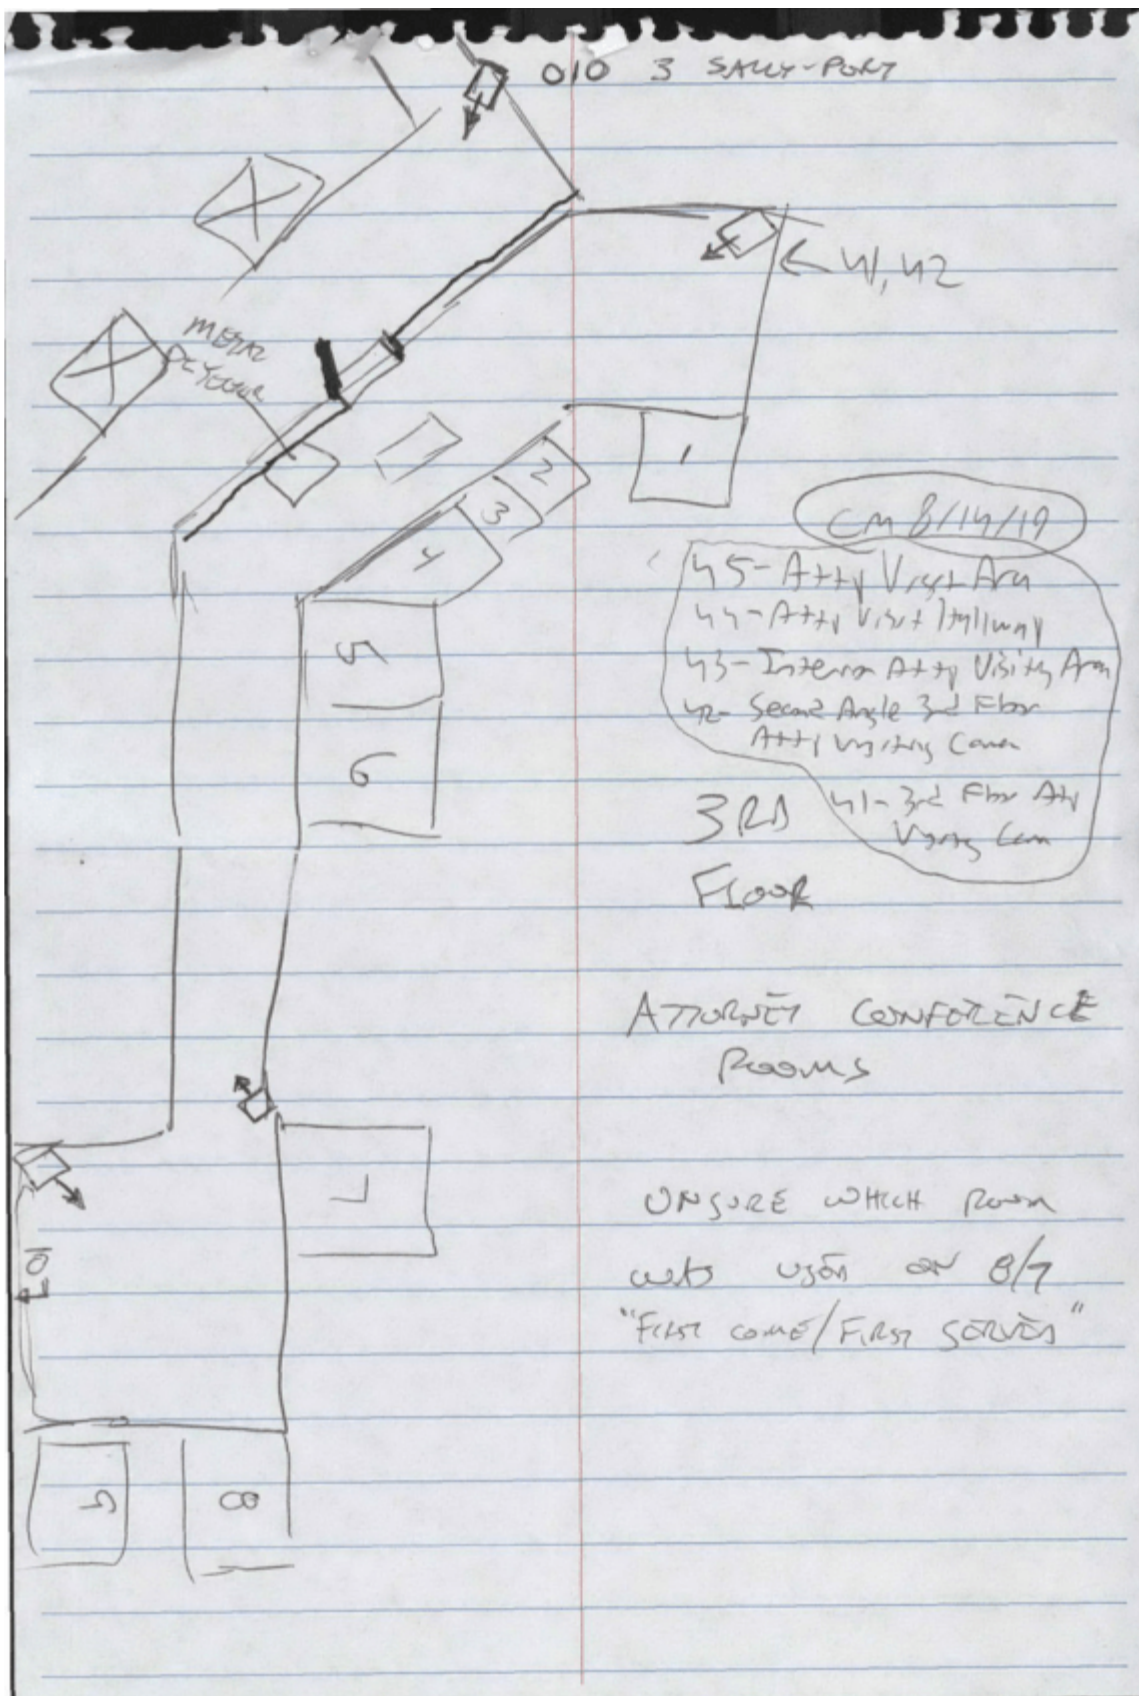 010 3 SALLY-PORT
41, 42
METAL
DETECTOR
1
2
3
4
5
6
CM 8/14/19
45- Atty Visit Area
44- Atty Visit Hallway
43- Interior Atty Visiting Area
42- Second Angle 3rd Floor
Atty Visiting Camera
41- 3rd Floor Atty
Visiting Cam
3RD
FLOOR
ATTORNEY CONFERENCE
ROOMS
7
UNSURE WHICH ROOM
WAS USED ON 8/7
"FIRST COME/FIRST SERVED"
9
8